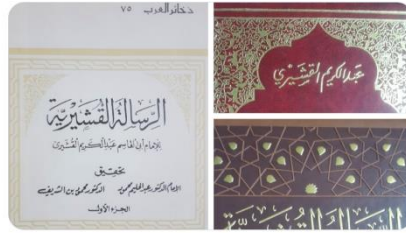 ذخائر العرب ٧٥
الرسالة القشيرية
للإمام أبي القاسم عبد الكريم القشيري
تحقيق
الإمام الدكتور عبد الحليم محمود الدكتور محمود بن الشريف
الجزء الأول
عبد الكريم القشيري
الرسالة القشيرية